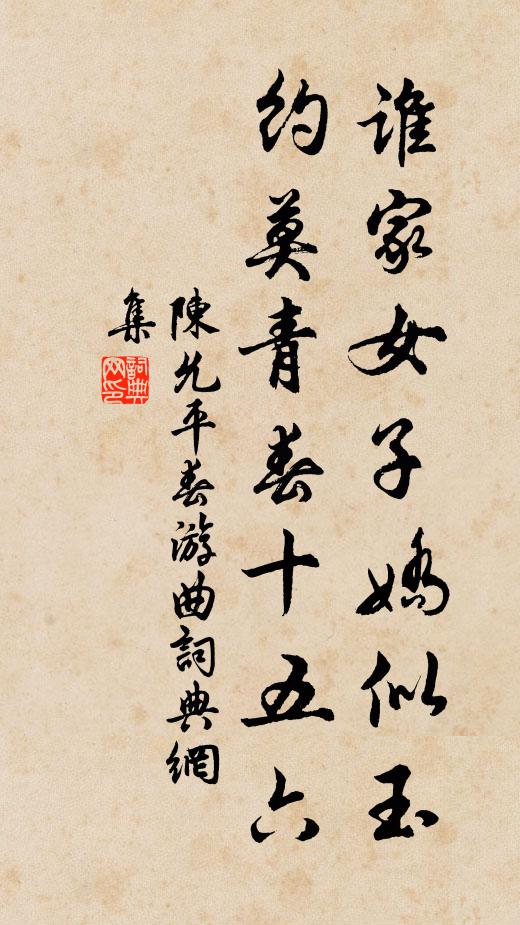 誰家女子嬌似玉
約莫青春十五六
陳允平春游曲詞典網
集
詞典網印